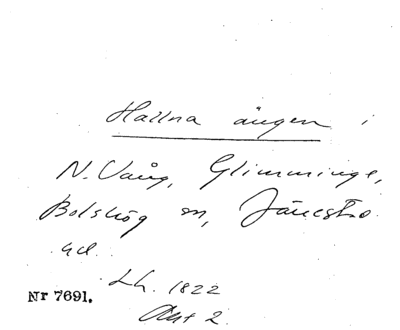 Hallna ängen i
N. Vång, Glimminge,
Bolshög sn, Järrestad
hd.
Lh. 1822
Akt 2.
Nr 7691.